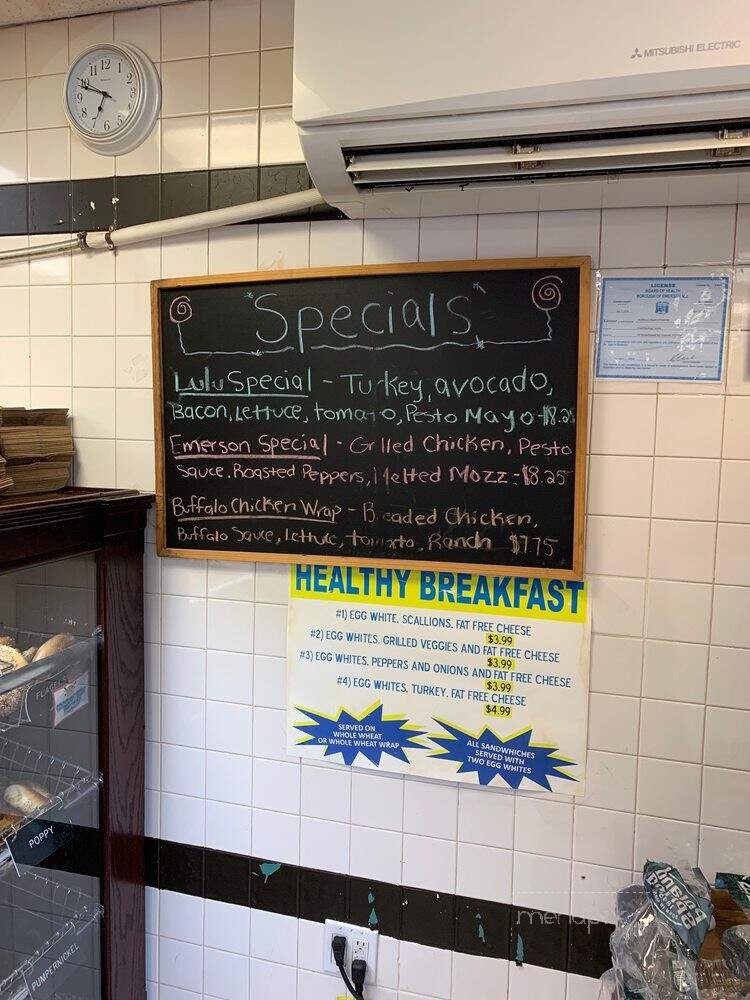 MITSUBISHI ELECTRIC
"Specials"
Lulu Special - Turkey, avocado,
Bacon, Lettuce, tomato, Pesto Mayo - $8.25
Emerson Special - Grilled Chicken, Pesto
Sauce, Roasted Peppers, Melted Mozz - $8.25
Buffalo Chicken Wrap - Breaded Chicken,
Buffalo Sauce, lettuce, tomato, Ranch $7.75
LICENSE
BOARD OF HEALTH
BOROUGH OF EMERSON, N.J.
HEALTHY BREAKFAST
#1) EGG WHITE, SCALLIONS, FAT FREE CHEESE
$3.99
#2) EGG WHITES, GRILLED VEGGIES AND FAT FREE CHEESE
$3.99
#3) EGG WHITES, PEPPERS AND ONIONS AND FAT FREE CHEESE
$3.99
#4) EGG WHITES, TURKEY, FAT FREE CHEESE
$4.99
SERVED ON
WHOLE WHEAT
OR WHOLE WHEAT WRAP
ALL SANDWHICHES
SERVED WITH
TWO EGG WHITES
POPPY
PUMPERNICKEL